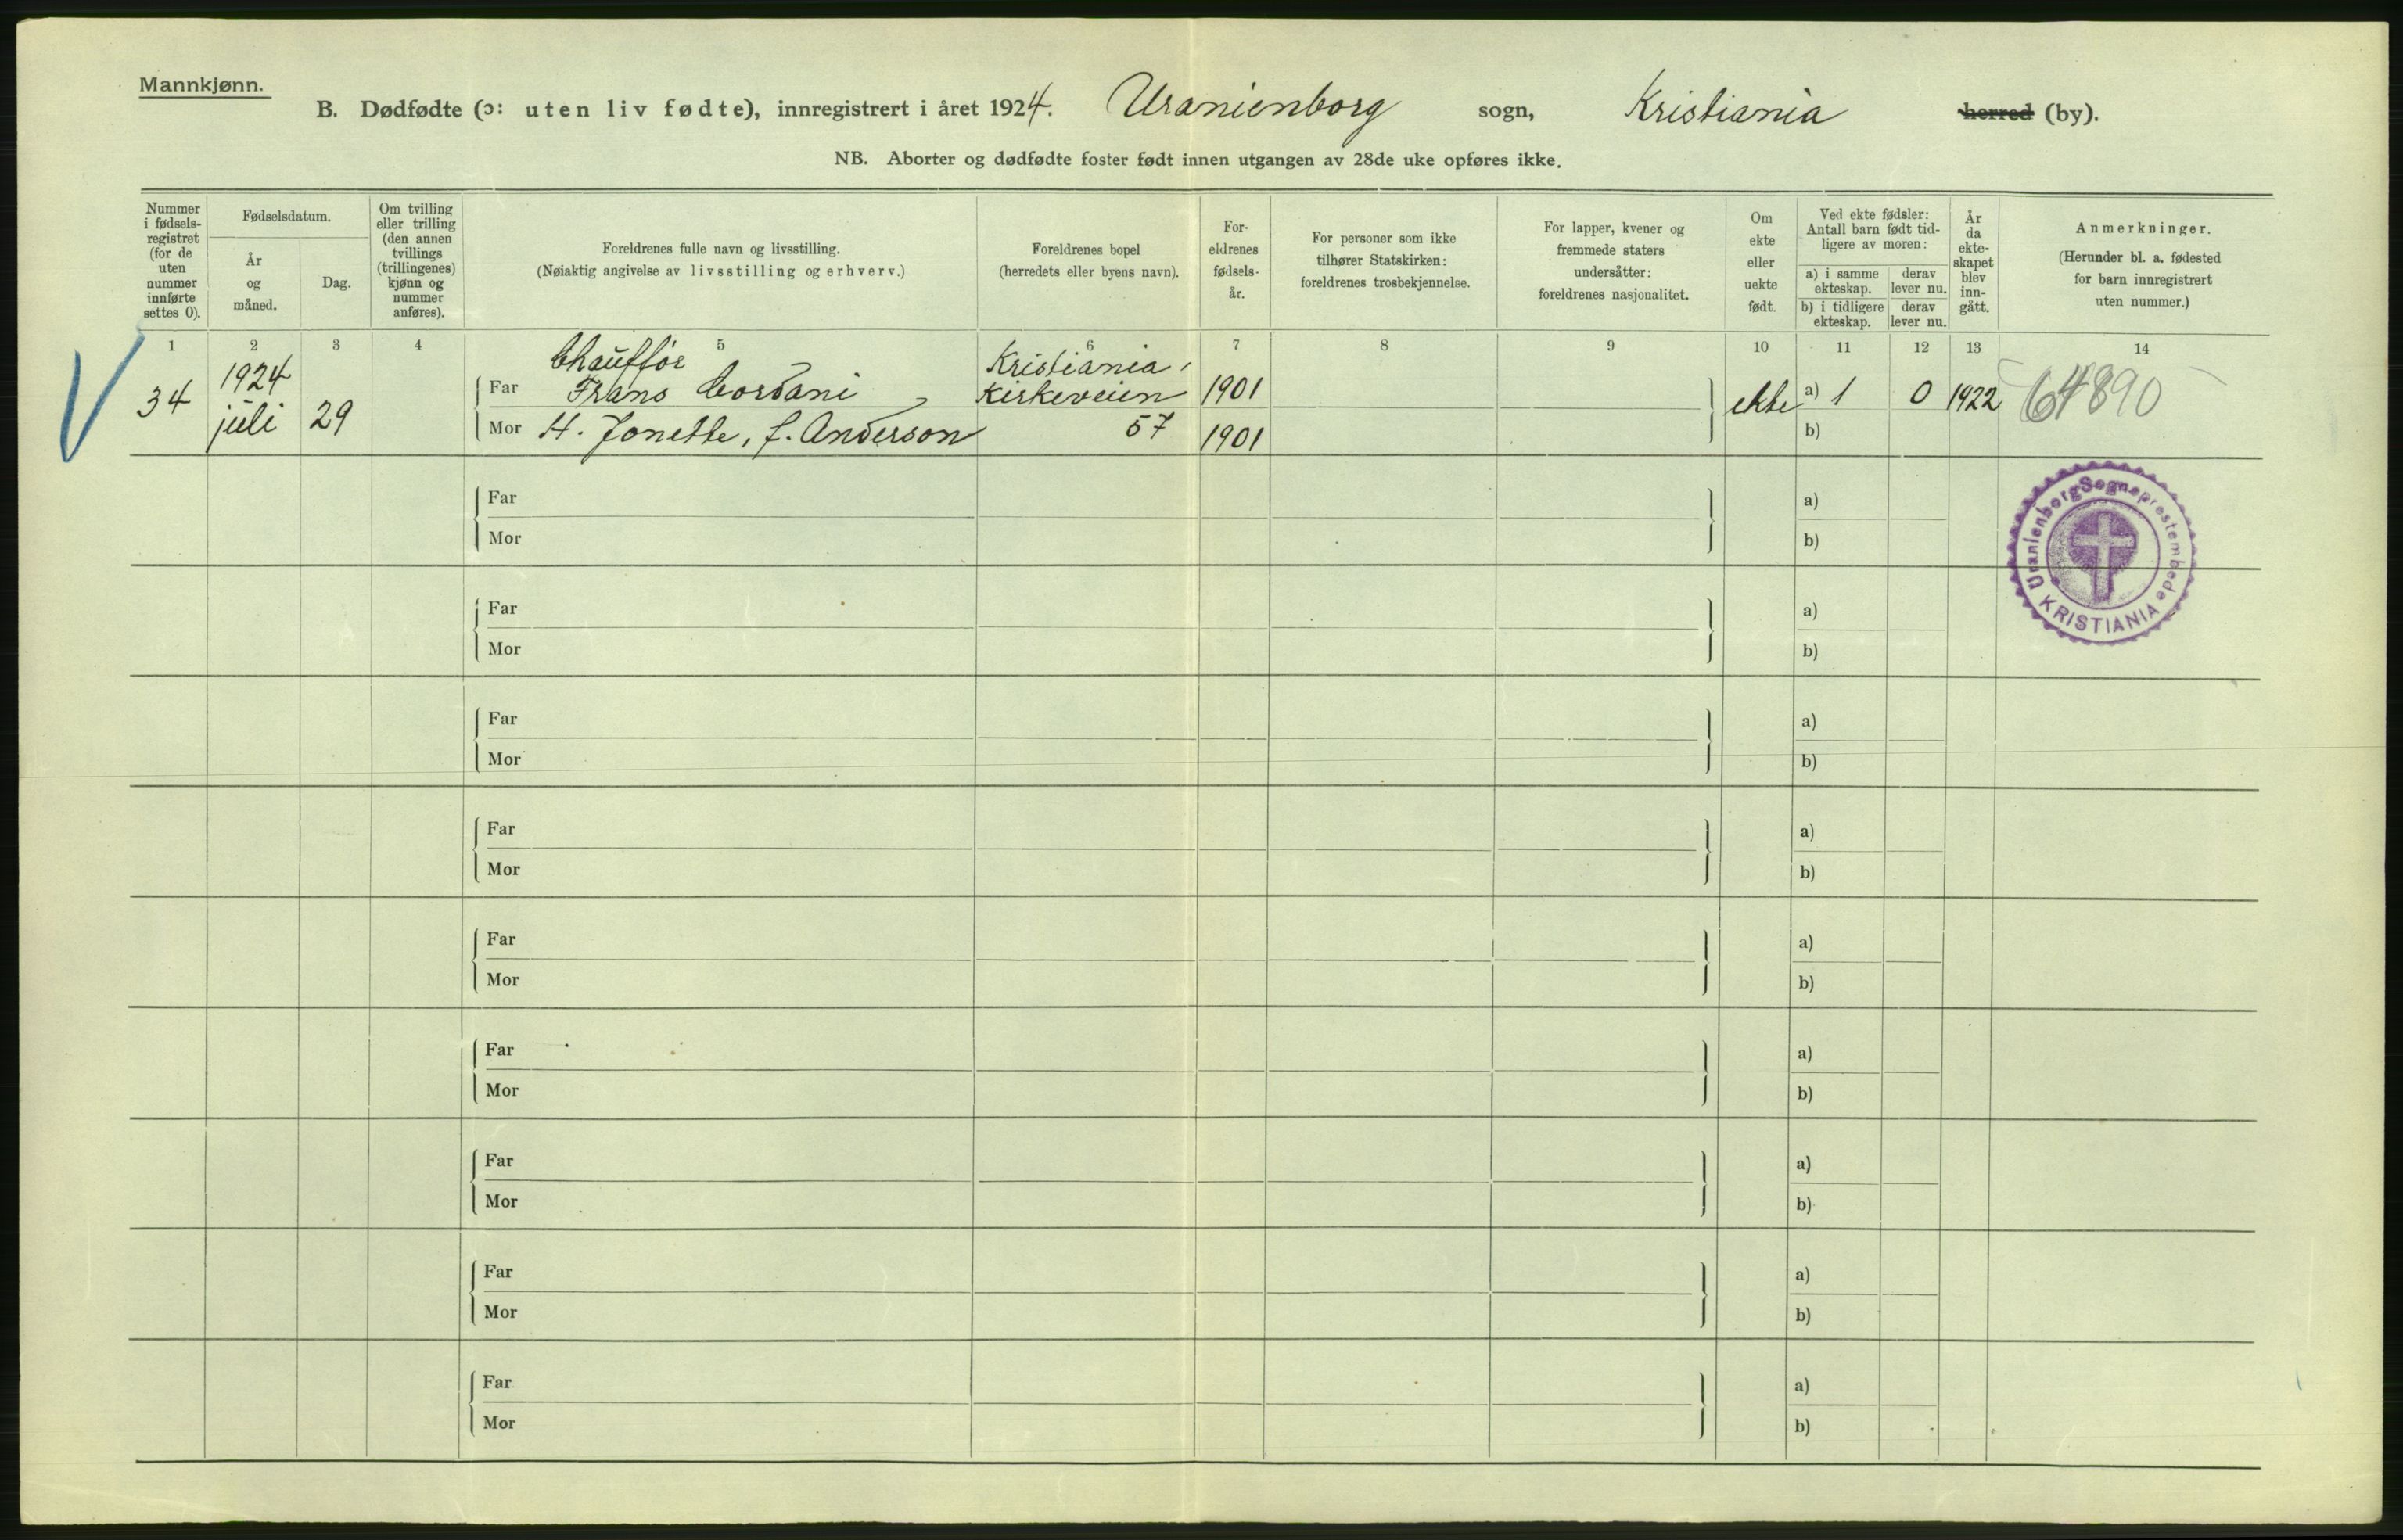 Mannkjønn.
B. Dødfødte (ɔ: uten liv fødte), innregistrert i året 1924. Uranienborg sogn, Kristiania herred (by).
NB. Aborter og dødfødte foster født innen utgangen av 28de uke opføres ikke.
Nummer i fødsels-registret (for de uten nummer innførte settes 0).
Fødselsdatum.
År og måned.
Dag.
Om tvilling eller trilling (den annen tvillings (trillingenes) kjønn og nummer anføres).
Foreldrenes fulle navn og livsstilling.
(Nøiaktig angivelse av livsstilling og erhverv.)
Foreldrenes bopel
(herredets eller byens navn).
For-eldrenes fødsels-år.
For personer som ikke tilhører Statskirken: foreldrenes trosbekjennelse.
For lapper, kvener og fremmede staters undersåtter: foreldrenes nasjonalitet.
Om ekte eller uekte født.
Ved ekte fødsler: Antall barn født tid-ligere av moren:
a) i samme ekteskap.
derav lever nu.
b) i tidligere ekteskap.
derav lever nu.
År da ekte-skapet blev inn-gått.
Anmerkninger.
(Herunder bl. a. fødested for barn innregistrert uten nummer.)
1 2 3 4 5 6 7 8 9 10 11 12 13 14
34 1924 juli 29
Chauffør
Far Frans Cordani
Mor H. Jonette, f. Anderson
Kristiania,
Kirkeveien
57
1901
1901
ekte a) 1 0 1922 64890
b)
Uranienborg Sogneprestembede
KRISTIANIA
Far a)
Mor b)
Far a)
Mor b)
Far a)
Mor b)
Far a)
Mor b)
Far a)
Mor b)
Far a)
Mor b)
Far a)
Mor b)
Far a)
Mor b)
Far a)
Mor b)